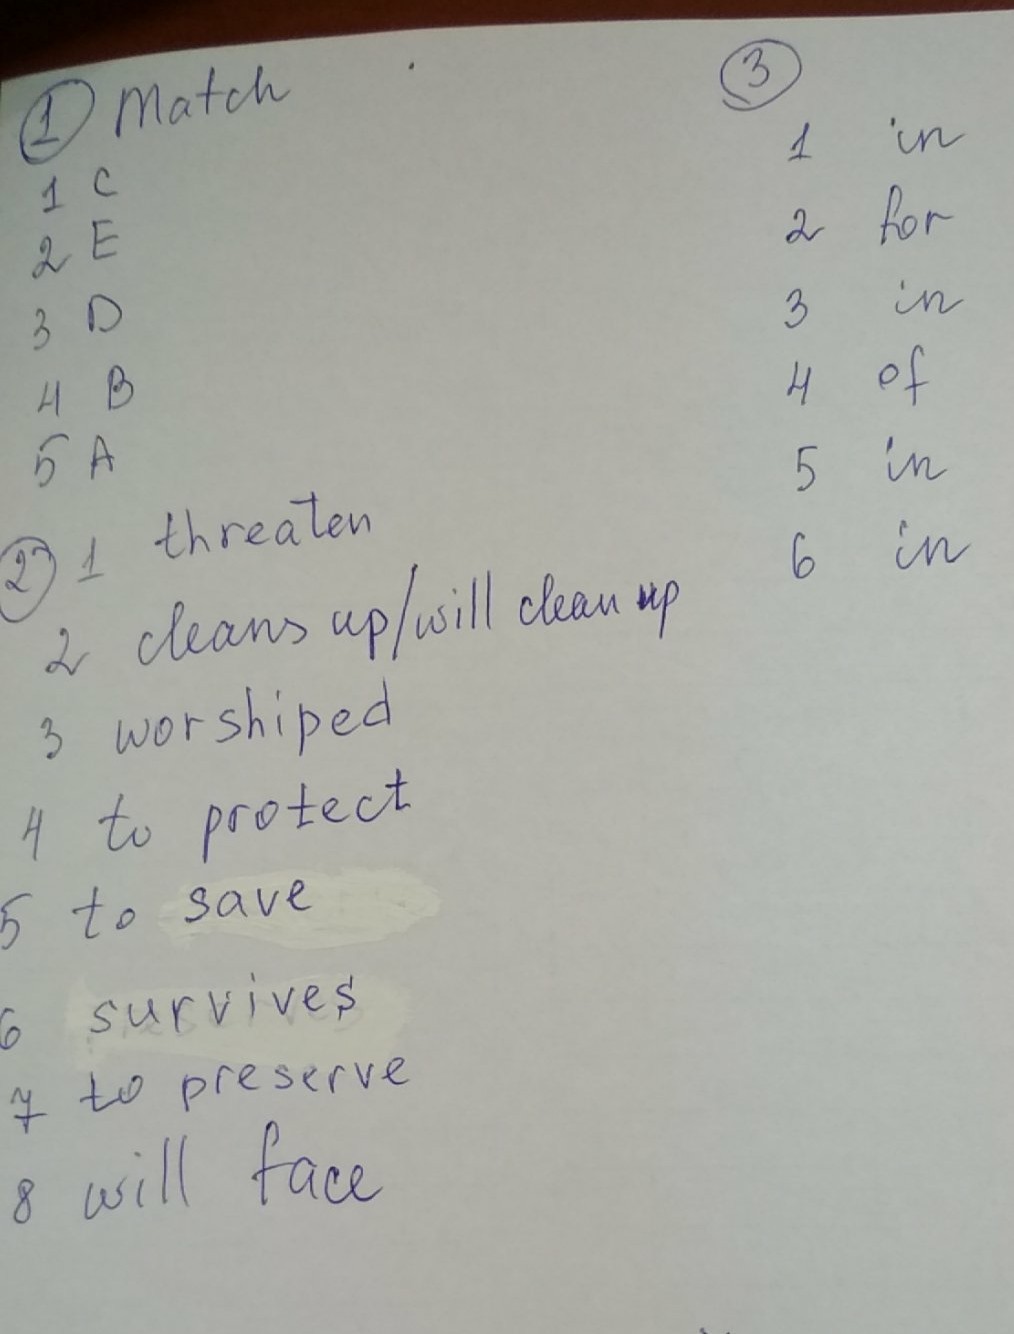 1 Match
1 C
2 E
3 D
4 B
5 A
2 1 threaten
2 cleans up/will clean up
3 worshiped
4 to protect
5 to save
6 survives
7 to preserve
8 will face
3
1 in
2 for
3 in
4 of
5 in
6 in